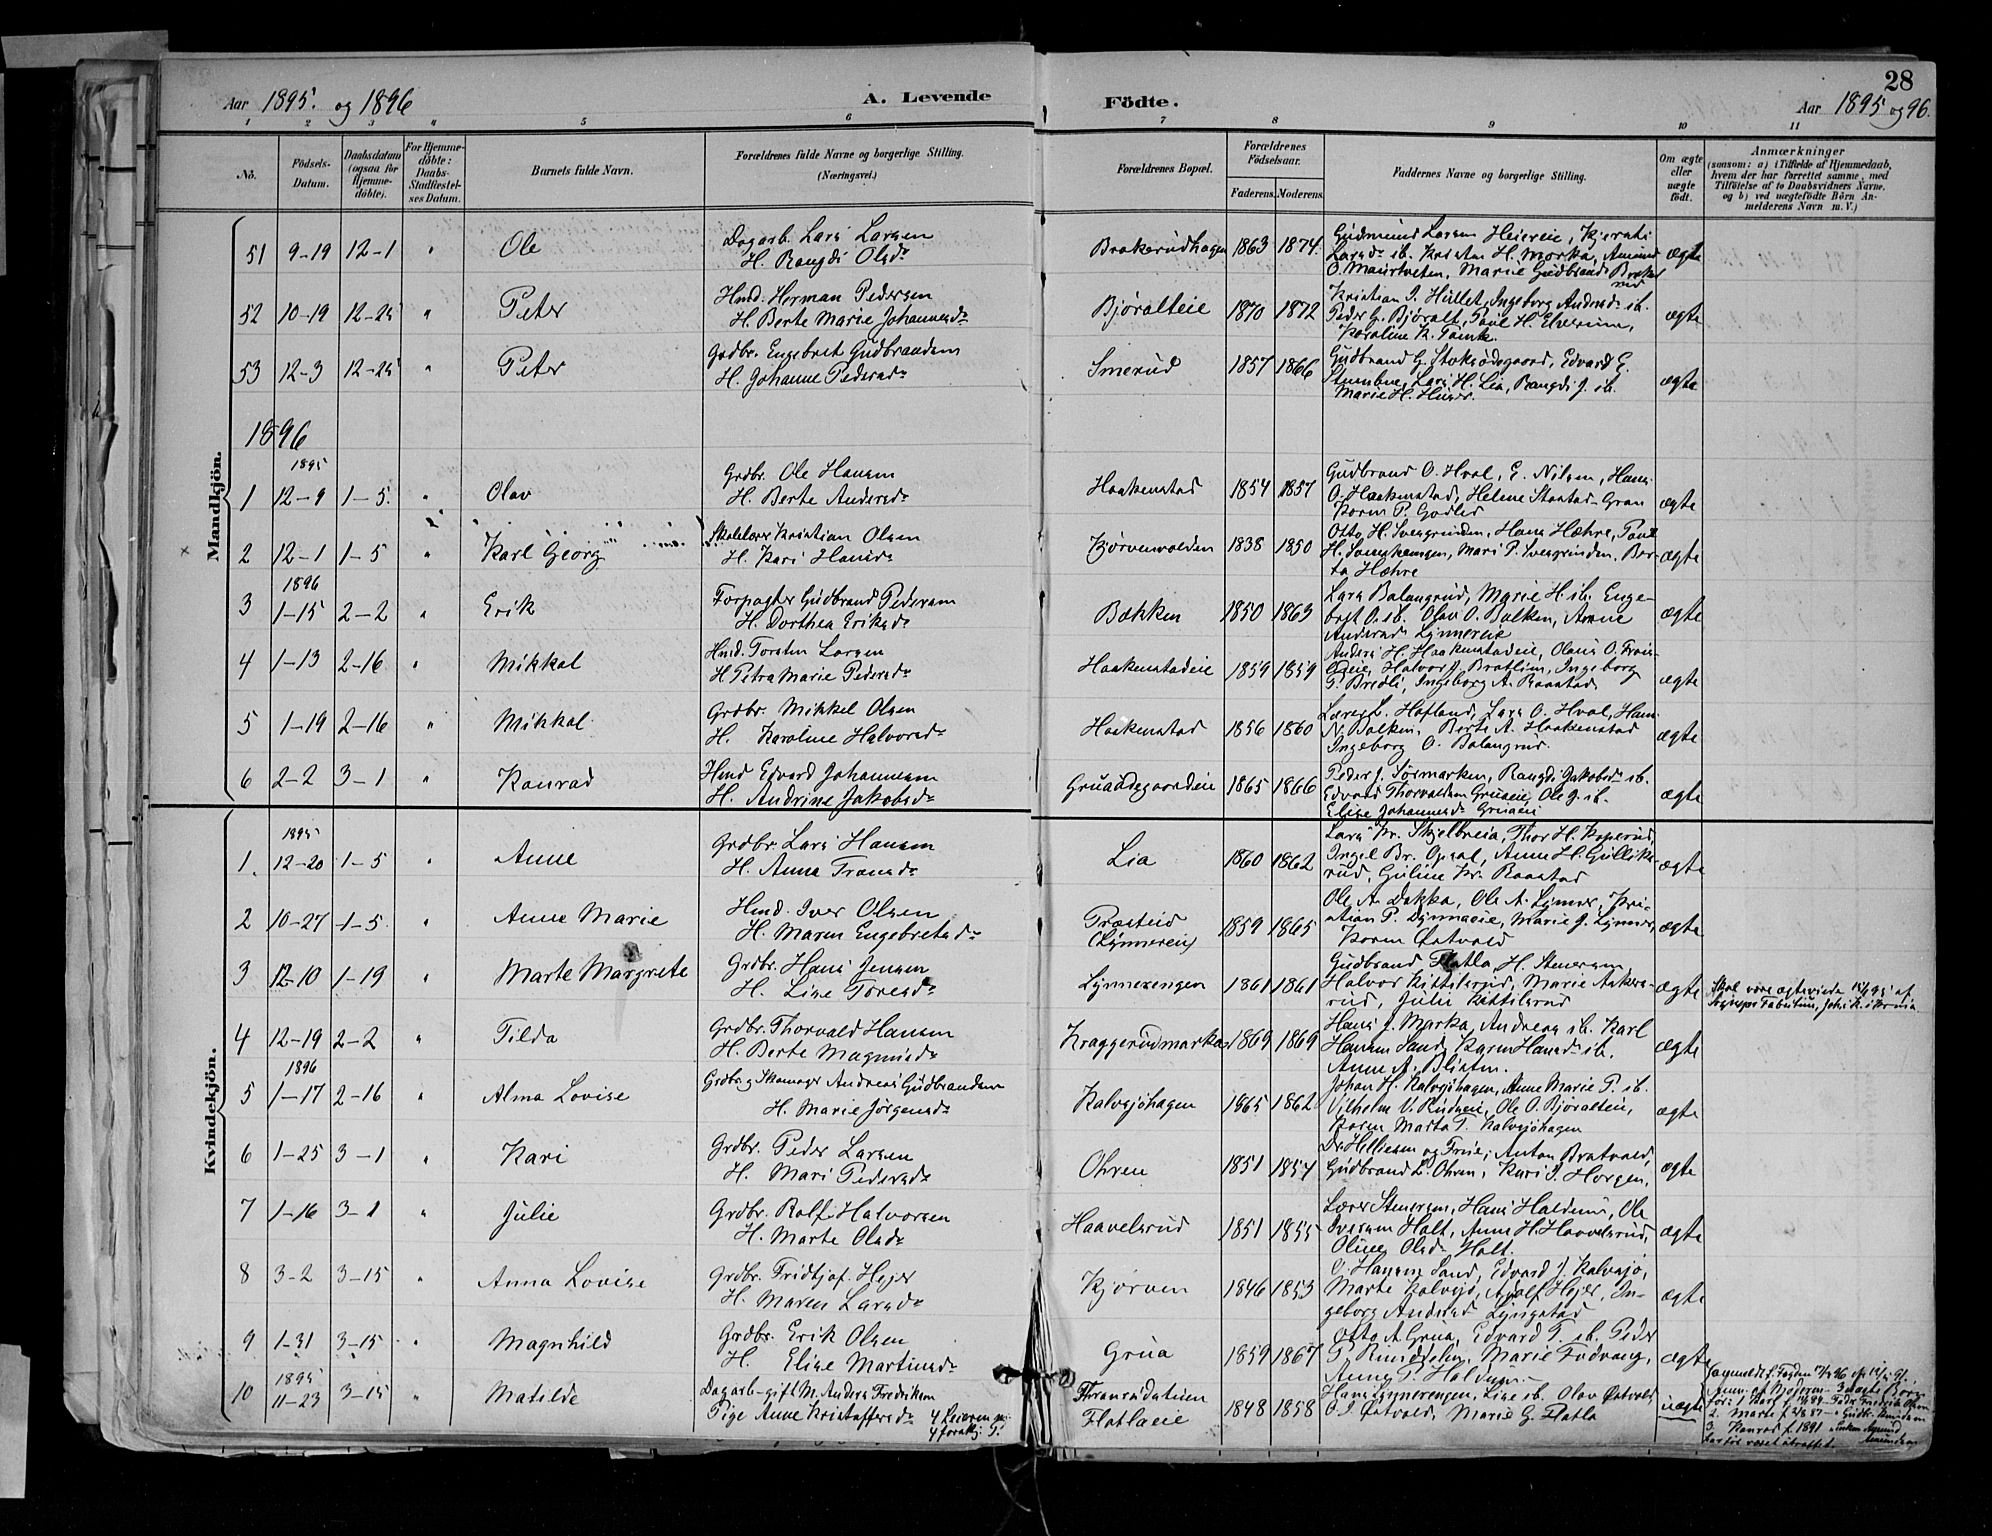 28
Aar 1895. og 1896
A. Levende Födte.
Aar 1895 og 96.
1 2 3 4 5 6 7 8 9 10 11
No.
Födsels-Datum.
Daabsdatum (ogsaa for Hjemme-döbte).
For Hjemme-döbte: Daabs-Stadfæstel-ses Datum.
Barnets fulde Navn.
Forældrenes fulde Navne og borgerlige Stilling.
(Næringsvei.)
Forældrenes Bopæl.
Forældrenes Födselsaar.
Faderens. Moderens.
Faddernes Navne og borgerlige Stilling.
Om ægte eller uægte födt.
Anmærkninger
(saasom: a) i Tilfælde af Hjemmedaab,
hvem der har forrettet samme, med
Tilföielse af to Daabsvidners Navne,
og b) ved uægtefödte Börn An-
melderens Navn m. V.)
Mandkjön.
51 9-19 12-1 " Ole
Dagarb. Lars Larsen
H. Rangdi Olsdr
Brakerudhagen 1863 1874
Gudmund Larsen Heiereie, Kjersti
Larsdr ib. Kristen H. Morka, Amund
O. Maurtveten, Marie Gudbrandsdr
ægte
52 10-19 12-25 " Peter
Hmd. Herman Pedersen
H. Berte Marie Johannesdr
Bjøralteie 1870 1872
Kristian I. Hullet, Ingeborg Andersdr ib.
Peder G. Bjøralt, Paul H. Elverum,
Karoline K.
ægte
53 12-3 12-25 " Peter
Grdbr. Engebret Gudbrandsen
H. Johanne Pedersdr
Smerud 1857 1866
Gudbrand G. Stoksødegaard, Edvard E.
Lars H. Lia, Rangdi J. ib.
Marie H.
ægte
1896
1895
1 12-9 1-5. " Olav
Grdbr. Ole Hansen
H. Berte Andersdr
Haakenstad 1854 1857
Gudbrand O. Hval, E. Nilsen, Hans
O. Haakenstad, Helene Staxtad - Gran
Karen P.
ægte
2 12-1 1-5 " Karl Georg
Skolelærer Kristian Olsen
H. Kari Hansdr
Kjørvenvolden 1838 1850
Otto H. Svengrinden, Hans Hæhre, Paul
H. Mari P. Svengrinden, Ber-
ta Hæhre
ægte
1896
3 1-15 2-2 " Erik
Forpagter Gudbrand Pedersen
H. Dorthea Eriksdr
Bækken 1850 1863
Lars Balangrud, Marie H. ib. Enge-
bret O. ib. Olav O. Bolken, Anne
Andersdr Lynnereie
ægte
4 1-13 2-16 " Mikkal
Hmd. Torsten Larsen
H. Petra Marie Pedersdr
Haakenstadeie 1859 1859
Anders H. Haakenstadeie, Olaus O.
Halvor J. Bratlien, Ingeborg
P. Bredli, Ingeborg A. Raastad
ægte
5 1-19 2-16 " Mikkal
Grdbr. Mikkel Olsen
H. Karoline Halvorsdr
Haakenstad 1856 1860
L. Hofland, Lars O. Hval, Hans
N. Bolken, Berte A. Haakenstad
Ingeborg O. Balangrud.
ægte
6 2-2 3-1 " Konrad
Hmd Edvard Johannesen
H. Andrine Jakobsdr
Gruaødegaardeie 1865 1866
Peder J. Sørmarken, Rangdi Jakobsdr ib.
Edvard Thorvaldsen Gruaeie, Ole J. ib.
Elise Johannesdr Gruaeie
ægte
Kvindekjön.
1895
1. 12-20 1-5 " Anne
Grdbr. Lars Hansen
H. Anne Fransdr
Lia 1860 1862
Lars Kr. Skjelbreia, Thor H. Koperud,
Ingel Br. Opsal, Anne H. Gullik-
rud, Guline Kr. Raastad
ægte
2 10-27 1-5 " Anne Marie
Hmd. Iver Olsen
H. Maren Engebretsdr
Præsteid (Lynnereie) 1859 1865
Ole A. Dakka, Ole A. Lynner, Kri-
stian P. Dynnaeie, Marie J. Lynner,
Karen Østvold
ægte
3 12-10 1-19 " Marte Margrete
Grdbr. Hans Jensen
H. Lise Toresdr
Lynnerengen 1861 1861
Gudbrand Flatla, H. Stenersen
Halvor Kittilsrud, Marie Ankers-
rud, Julie Kittilsrud
ægte
Skal være ægteviede
4 12-19 2-2 " Tilda
Grdbr. Thorvald Hansen
H. Berte Magnusdr
Kraggerudmarka 1869 1869
Hans J. Marka, Andreas ib. Karl
Hansen Sand, Karen Hansdr ib.
Anne A. Blisten.
ægte
1896
5 1-17 2-16 " Alma Lovise
Grdbr. og Skomager Andreas Gudbrandsen
H. Marie Jørgensdr
Kalvsjøhagen 1865 1862
Johan H. Kalvsjøhagen, Anne Marie P. ib.
Vilhelm V. Rudseie, Ole O. Bjøralteie,
Karen Marta P. Kalvsjøhagen
ægte
6 1-25 3-1 " Kari
Grdbr. Peder Larsen
H. Mari Pedersdr
Ohren 1851 1854
Dr. Hilliesen og Frue, Anton Bratvold,
Gudbrand L. Ohren, Kari I. Horgen,
ægte
7 1-16 3-1 " Julie
Grdbr. Rolf Halvorsen
H. Marte Olsdr
Haavelsrud 1851 1855
Lærer Stenersen, Hans Haldens, Ole
Iversen Holt, Anne H. Haavelsrud,
Oline Olsdr Holt.
ægte
8 3-2 3-15 " Anna Lovise
Grdbr. Fridtjof Hejer
H. Maren Larsdr
Kjørven 1846 1853
O. Hansen Sand, Edvard J. Kalvsjø,
Marte Kalvsjø, Adolf Hejer, In-
geborg Andersdr Lyngstad
ægte
9 1-31 3-15 " Magnhild
Grdbr. Erik Olsen
H. Elise Martinsdr
Grua 1859 1867
Otto A. Grua, Edvard T. ib. Peder
P. Rundselen, Marie Fudvang,
Anne P.
ægte
1895
10 11-23 3-15 " Matilde
Dagarb - gift M. Anders Fredriksen
Pige Anne Kristoffersdr 4 Leiermaal
4 forskj. P.
Flatlaeie 1848 1858
Hans Lynnerengen, Lise ib. Olav Østvold,
O. I. Østvold, Marie G. Flatla
uægte